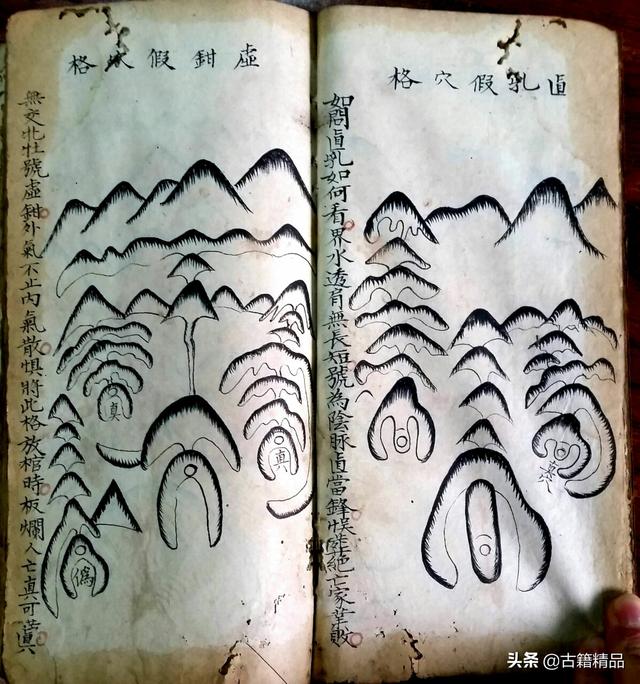 直乳假穴格
如問直乳如何看界水透肩無長短號為陰脉直當鋒悞絕亡家業敗
虛鉗假穴格
真
真
偽
無交牝牡號虛鉗外氣不止內氣散惧將此格放棺時板爛人亡真可
头条 @古籍精品